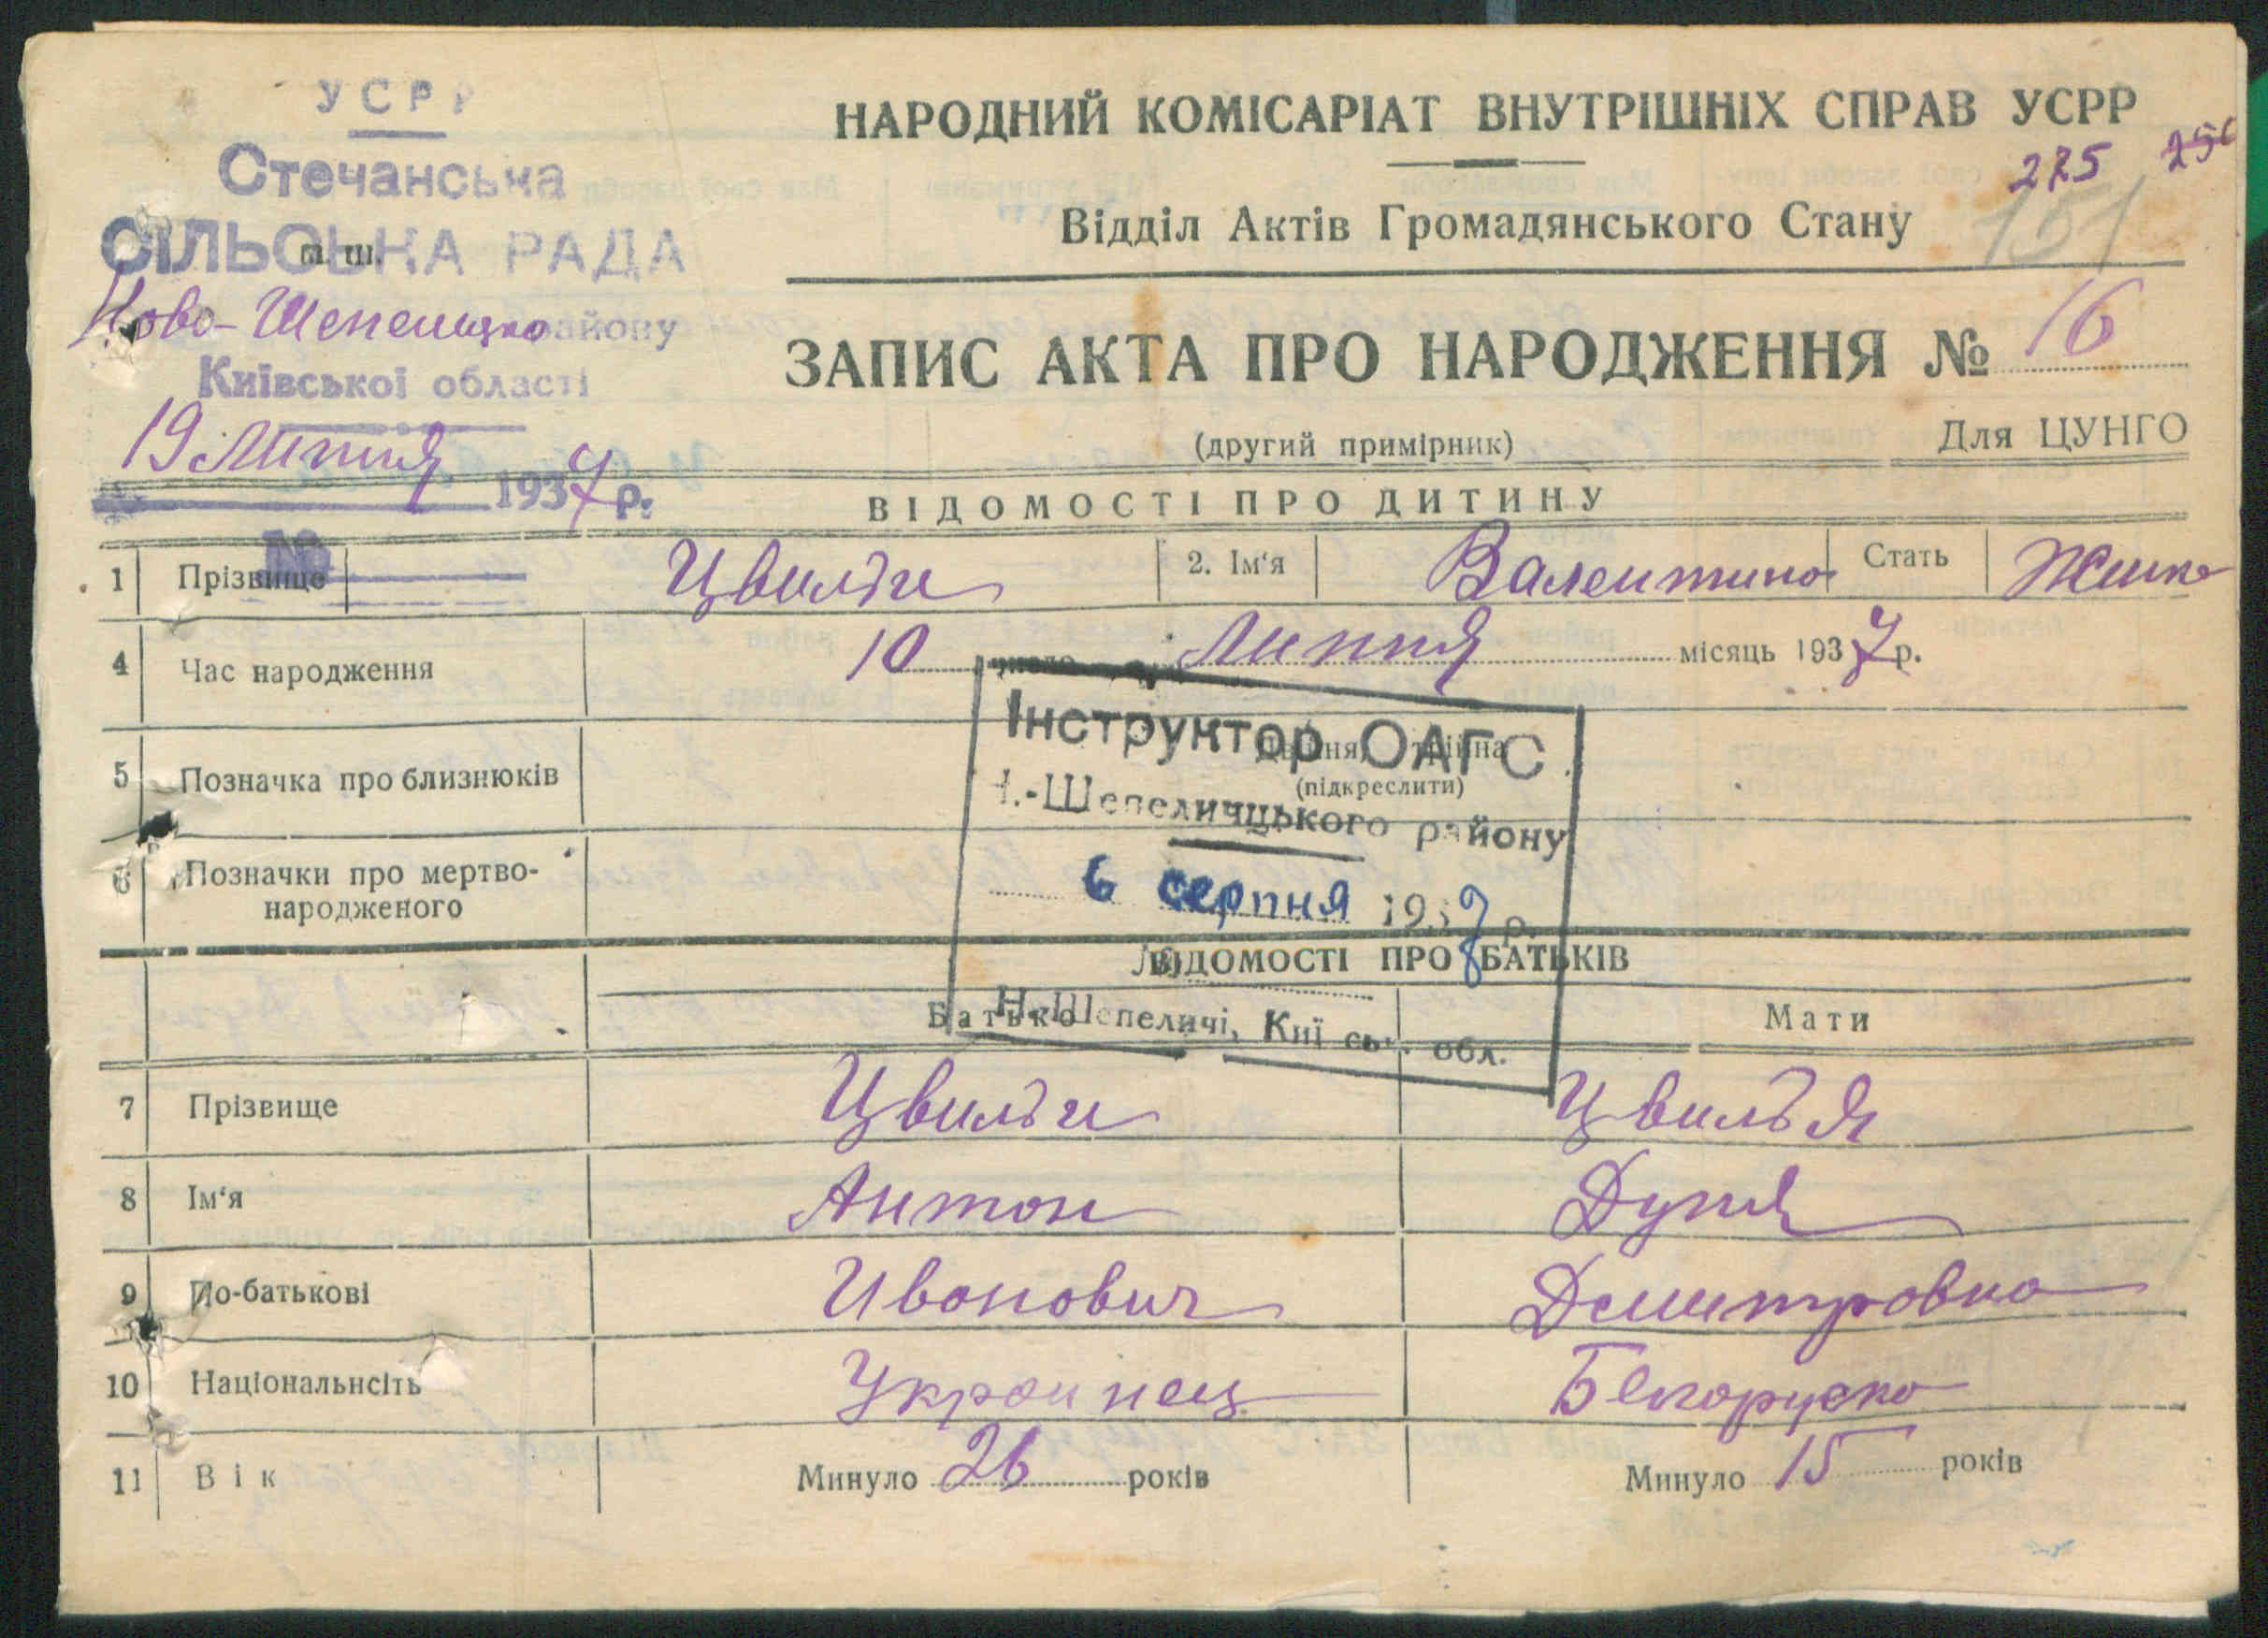 УСРР
Стечанська
СІЛЬСЬКА РАДА
м. ш.
Ново-Шепелицко району
Київської області
19 Липня 1937 р.
№
НАРОДНИЙ КОМІСАРІАТ ВНУТРІШНІХ СПРАВ УСРР
275
151
Відділ Актів Громадянського Стану
ЗАПИС АКТА ПРО НАРОДЖЕННЯ № 16
(другий примірник)
Для ЦУНГО
ВІДОМОСТІ ПРО ДИТИНУ
1 Прізвище Цвильди 2. Ім'я Валентина Стать Жинка
4 Час народження 10 число Липня місяць 1937 р.
5 Позначка про близнюків двійня, трійна
(підкреслити)
Інструктор ОАГС
Н.-Шепеличцького району
6 серпня 1937 р.
Н.-Шепеличі, Київськ. обл.
6 Позначки про мертво-
народженого
ВІДОМОСТІ ПРО БАТЬКІВ
Батько Мати
7 Прізвище Цвильди Цвильдя
8 Ім'я Антон Дуня
9 По-батькові Иванович Демитровна
10 Національнсіть Украинец Белоруска
11 Вік Минуло 26 років Минуло 15 років